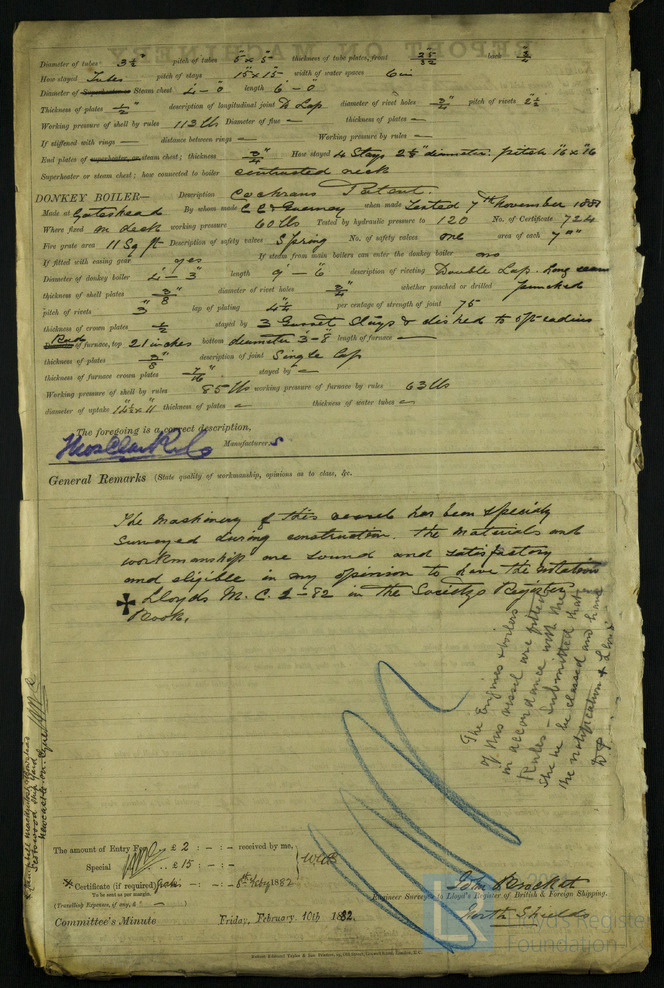 Diameter of tubes 3½" pitch of tubes 5" x 5" thickness of tube plates, front 25/32 back 3/4
How stayed Tubes pitch of stays 15" x 15" width of water spaces 6 in
Diameter of Superheater or Steam chest 4 - 0 length 6 - 0
Thickness of plates 1/2" description of longitudinal joint D Lap diameter of rivet holes 3/4" pitch of rivets 2½
Working pressure of shell by rules 113 lbs Diameter of flue — thickness of plates —
If stiffened with rings — distance between rings — Working pressure by rules —
End plates of superheater, or steam chest; thickness 3/4" How stayed 4 Stays 2⅛" diameter. pitch 16" x 16
Superheater or steam chest; how connected to boiler contracted neck
DONKEY BOILER— Description Cochrans Patent.
Made at Gateshead By whom made when made Tested 7th November 1881
Where fixed on deck working pressure 60 lbs Tested by hydraulic pressure to 120 No. of Certificate 724
Fire grate area 11 Sq ft Description of safety valves Spring No. of safety valves one area of each 7""
If fitted with easing gear yes If steam from main boilers can enter the donkey boiler no
Diameter of donkey boiler 4 - 3" length 9' - 6 description of riveting Double Lap. long seam
thickness of shell plates 3/8" diameter of rivet holes 3/4" whether punched or drilled punched
pitch of rivets 3" lap of plating 4¼ per centage of strength of joint 75
thickness of crown plates 1/2 stayed by 3 Gusset Stays & dished to radius
of furnace, top 21 inches bottom diameter 3 - 8 length of furnace —
thickness of plates 3/8" description of joint Single Lap
thickness of furnace crown plates 7/16" stayed by —
Working pressure of shell by rules 85 lbs working pressure of furnace by rules 63 lbs
diameter of uptake 14½" x 11" thickness of plates — thickness of water tubes —
The foregoing is a correct description,
Manufacturers
General Remarks (State quality of workmanship, opinions as to class, &c.
The machinery of this vessel has been specially
surveyed during construction. The materials and
workmanship are sound and satisfactory
and eligible in my opinion to have the notation
✠ Lloyds M.C. 2-82 in the Societys Register
Book.
The Engines & boilers
of this vessel are fitted
in accordance with the
Rules - Submitted that
she be classed and have
the notification
Newcastle-on-Tyne
The amount of Entry Fee £ 2 : - : - received by me,
Special £ 15 : - : -
Certificate (if required) - : - : - 8th Feby 1882
To be sent as per margin.
(Travelling Expenses, if any, £ —)
John
Engineer Surveyor to Lloyd's Register of British & Foreign Shipping.
North Shields
Committee's Minute Friday, February 10th 1882.
Lloyd's Register
Foundation